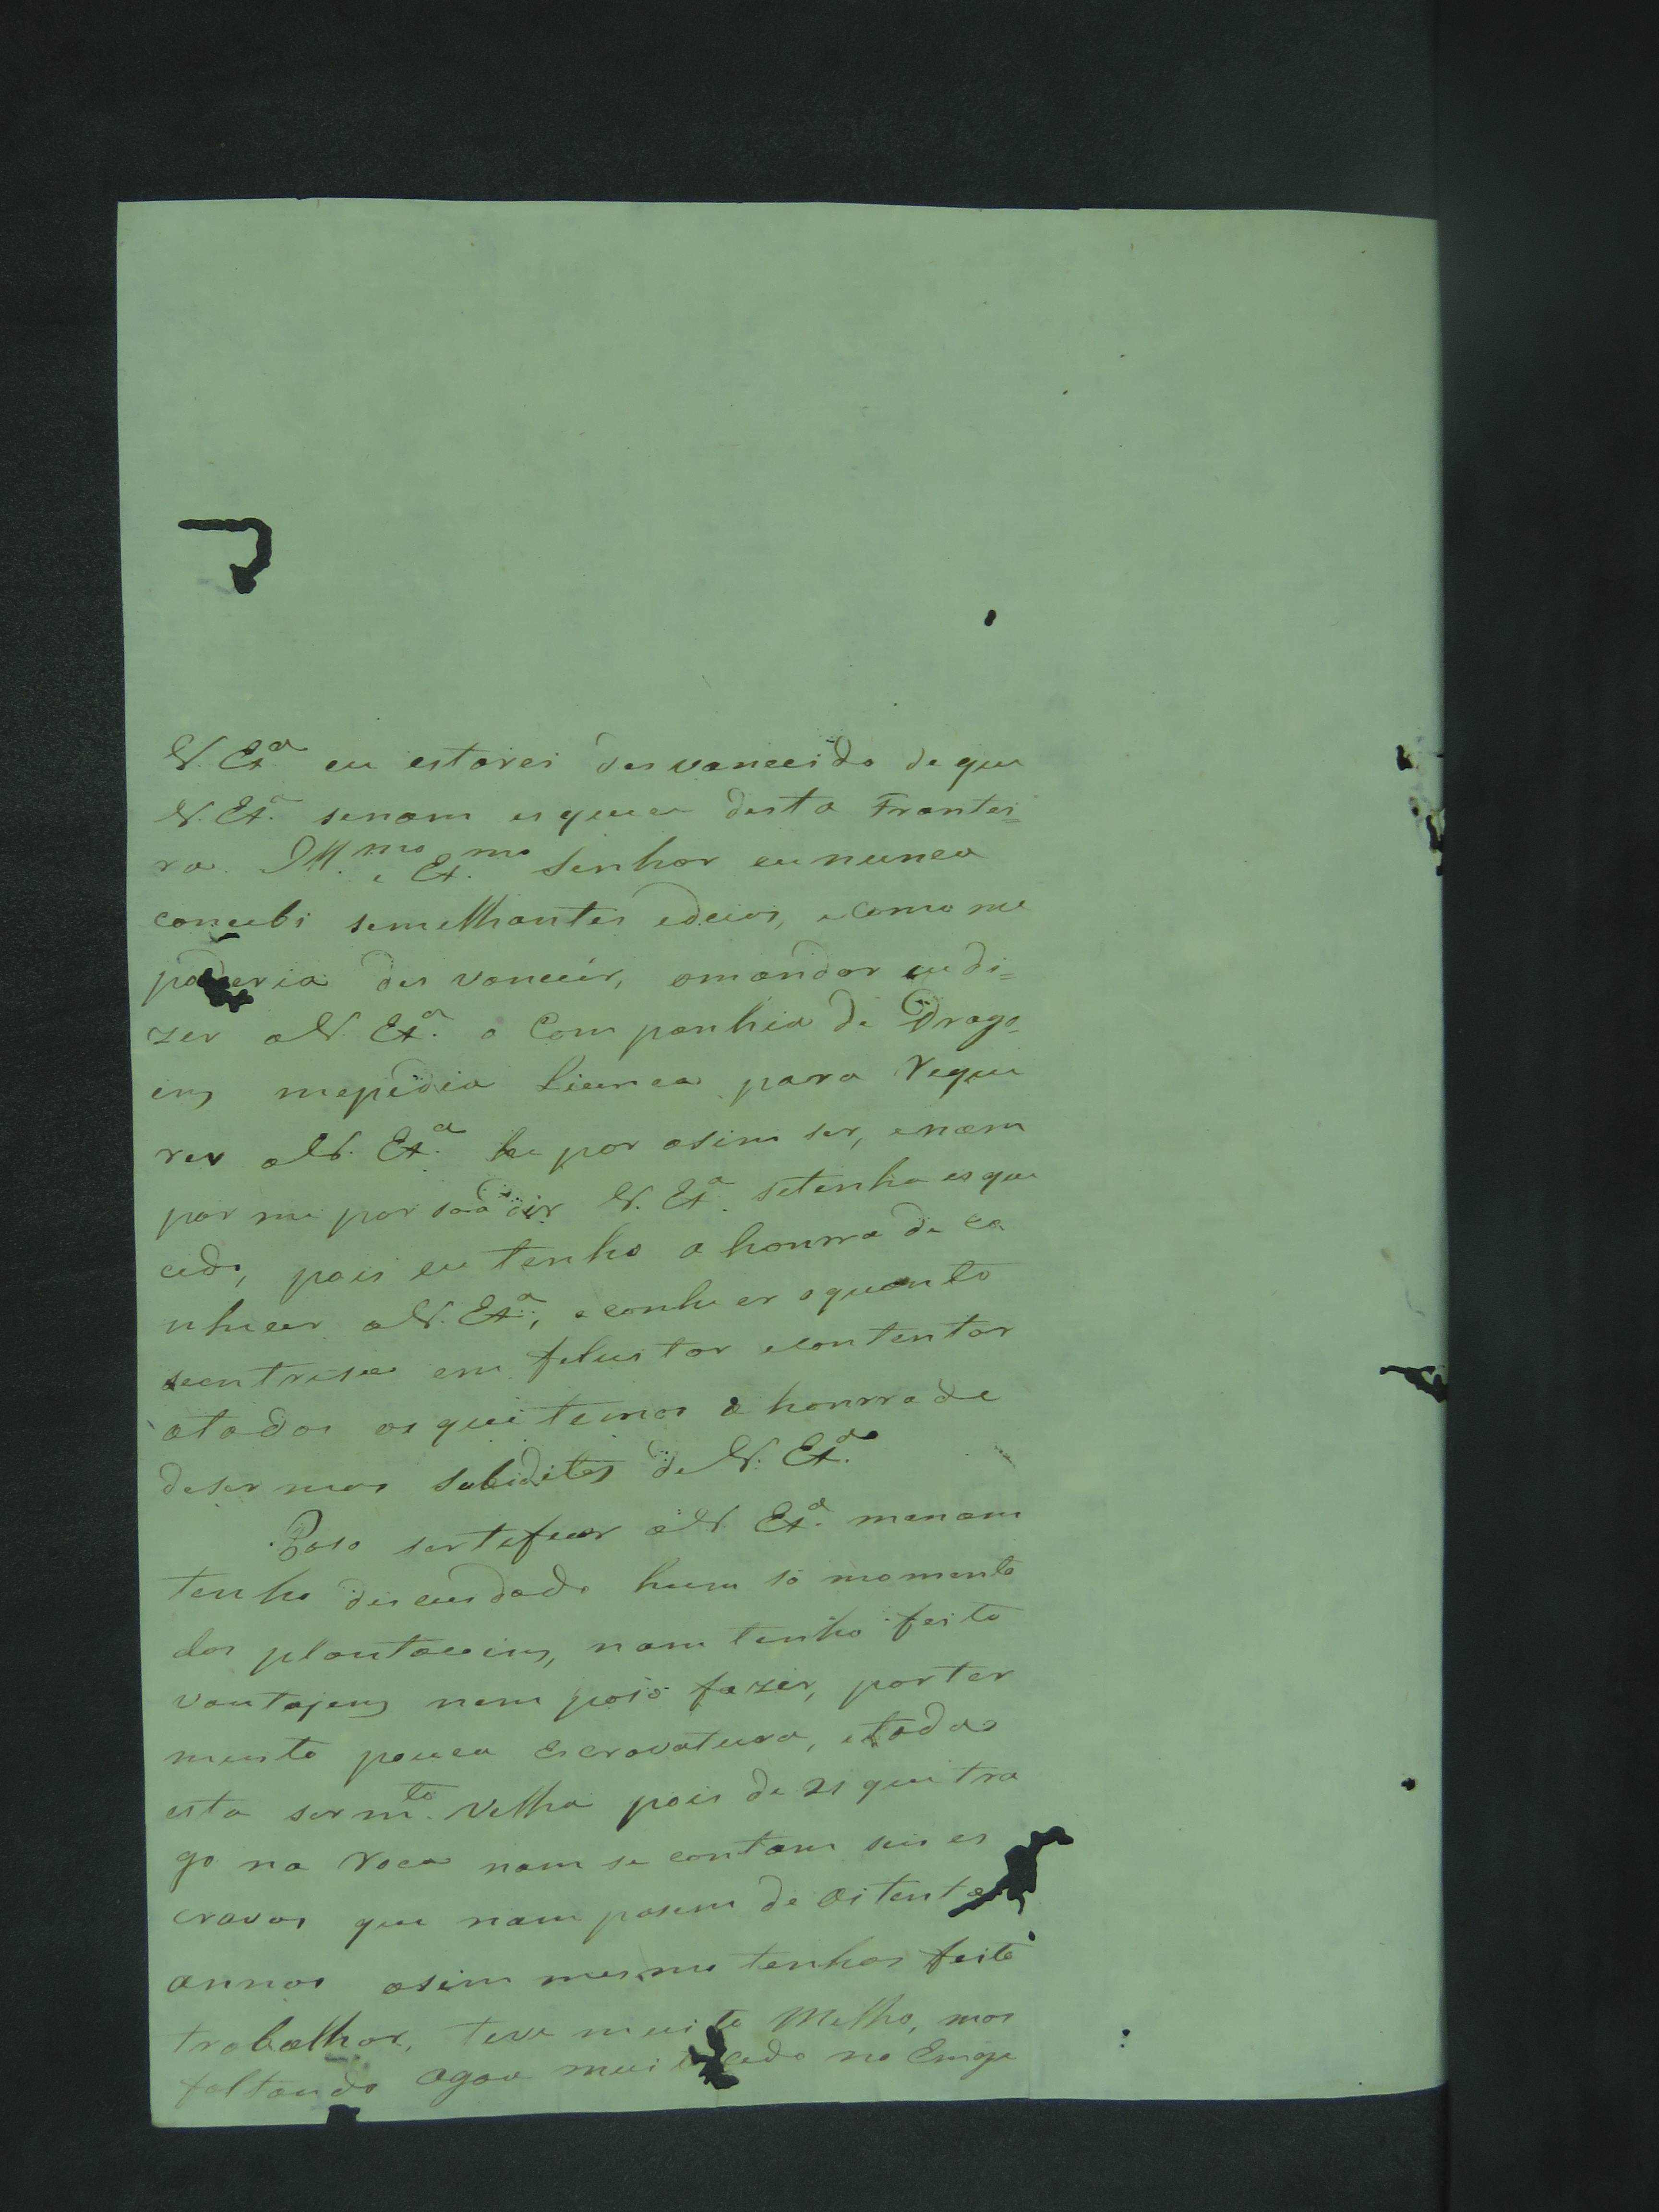 V. Ex.ª eu estarei desvanecido de que
V. Ex.ª senam esquece desta Frontei=
ra. Ill.mo e Ex.mo Senhor eu nunca
concebi semelhantes edeias, e como me
poderia desvanecer, omandar eu di=
zer aV. Ex.ª a Companhia de Drago=
ens mepedia licenca para reque
rer aV. Ex.ª he por asim ser, enam
por me persoadir V. Ex.ª setenha esque
cido, pois eu tenho a honrra de co
nhecer aV. Ex.ª, e conhecer oquanto
seentrese em felecitar econtentar
atodos os que temos a honrra de
desermos subiditos de V. Ex.ª
Poso serteficar aV. Ex.ª menam
tenho discuidado hum só momento
das plantacoins, nam tenho feito
vantajens nem poso fazer, por ter
muito pouca escravatura, etoda
esta ser m.to velha pois de 21 que tra
go na roca nam se contam seis es
cravos que nam pasem de oitenta
annos asim mesmo tenhos feito
trabalhar, teve muito Milho, mas
faltando agoa muito cedo no Emga